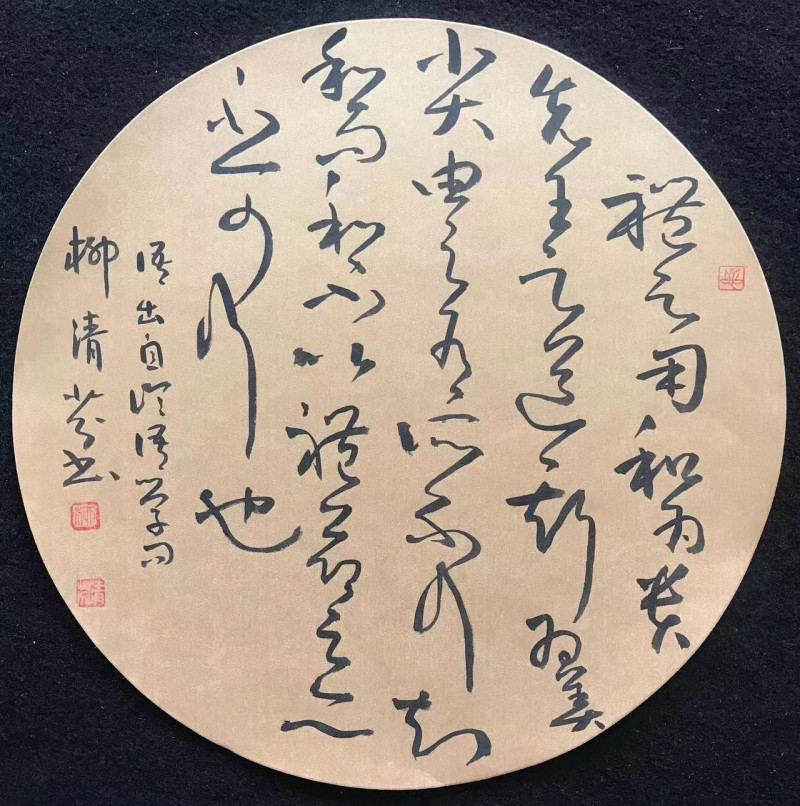 禮之用和為貴
先王之道斯為美
小大由之有所不行知
和而和不以禮節之
亦不可行也
語出自論語學而
柳清芬書